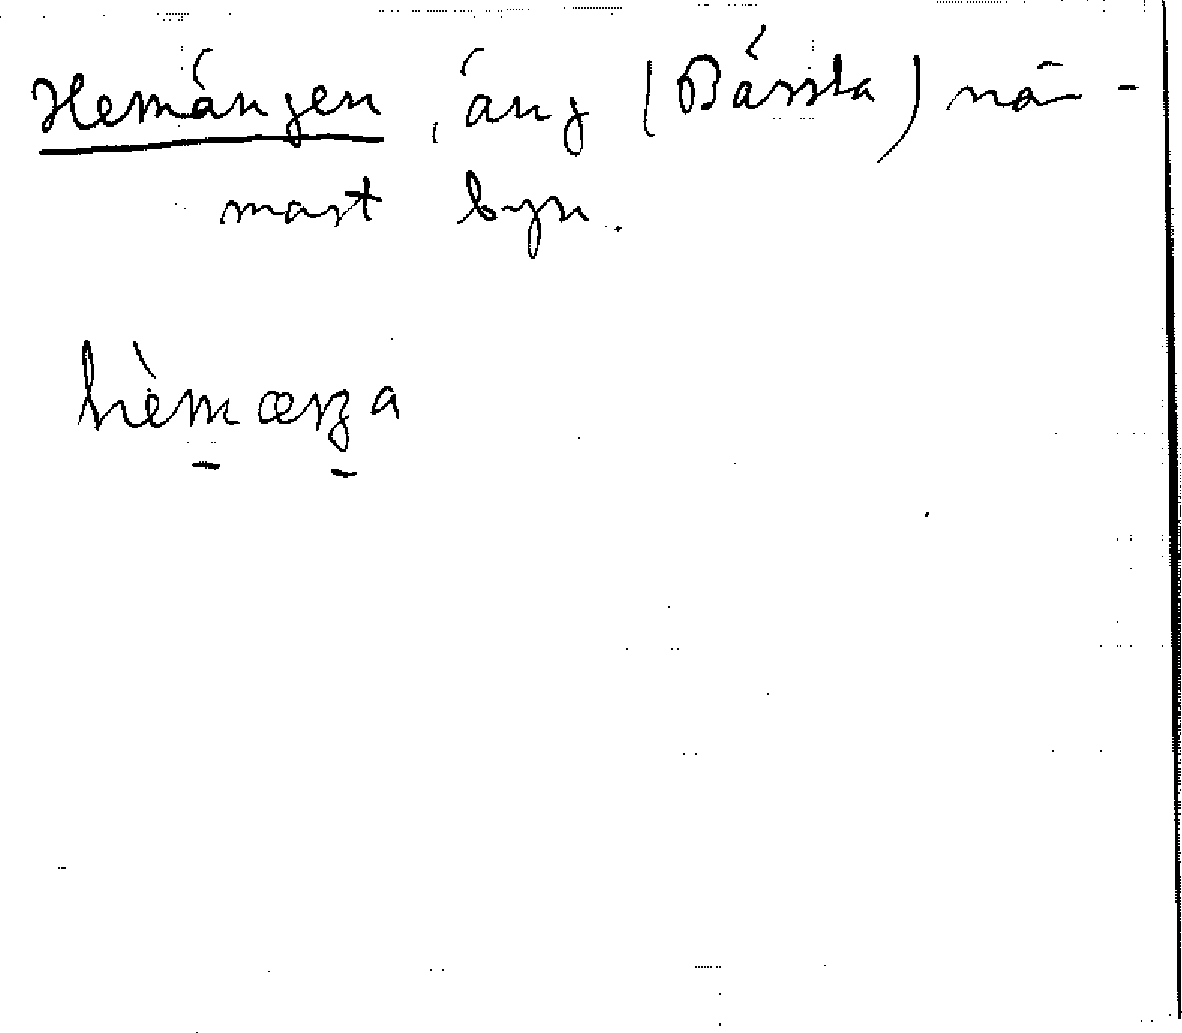 Hemängen, äng (Bärsta) när-
mast byn.
hèmæŋa